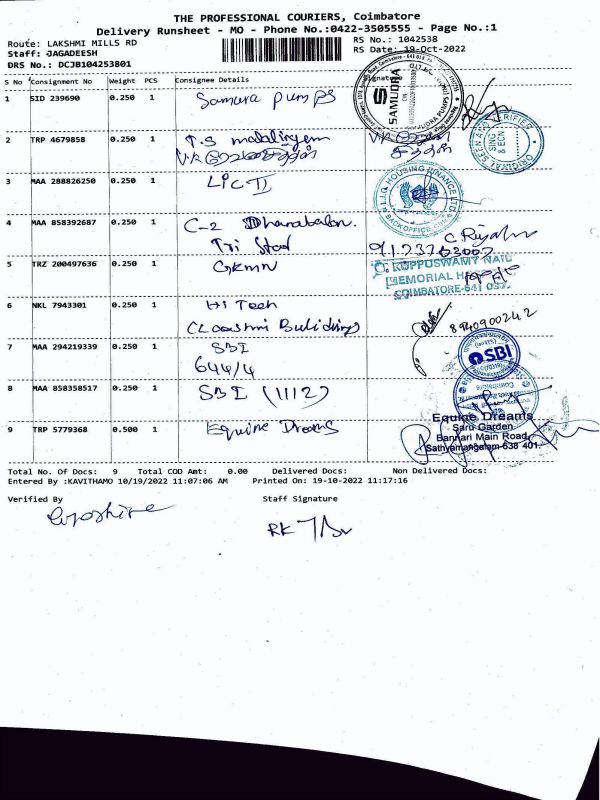 THE PROFESSIONAL COURIERS, Coimbatore
Delivery Runsheet - MO - Phone No.:0422-3505555 - Page No.:1
Route: LAKSHMI MILLS RD
RS No.: 1042538
Staff: JAGADEESH
RS Date: 19-Oct-2022
DRS No.: DCJB104253801
S No Consignment No Weight PCS Consignee Details Signature
1 SID 239690 0.250 1 Samura pumps
SAMUDRA
2 TRP 4679858 0.250 1 T.S
3 MAA 288826250 0.250 1 LIC II
HOUSING FINANCE LTD
BACK OFFICE
4 MAA 858392687 0.250 1 C-2 Dhanabalan.
Tri Stad
5 TRZ 200497636 0.250 1 GKMN
G. KUPPUSWAMY NAIDU
MEMORIAL
COIMBATORE-641 037.
6 NKL 7943301 0.250 1 Hi Tech
8940900242
7 MAA 294219339 0.250 1 SBI
644/4
SBI
8 MAA 858358517 0.250 1 SBI (1112)
9 TRP 5779368 0.500 1 Equine Dreams
Equine Dreams
Saru Garden
Bannari Main Road,
Sathyamangalam-638 401
Total No. Of Docs: 9 Total COD Amt: 0.00 Delivered Docs: Non Delivered Docs:
Entered By :KAVITHAMO 10/19/2022 11:07:06 AM Printed On: 19-10-2022 11:17:16
Verified By Staff Signature